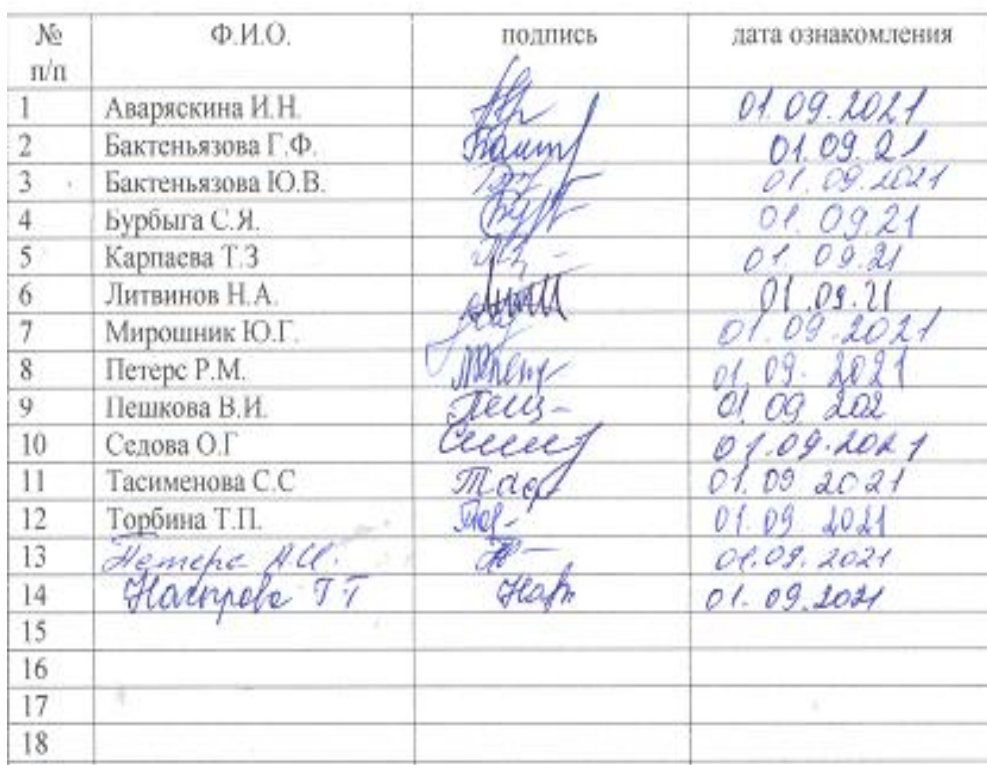 № Ф.И.О. подпись дата ознакомления
п/п
1 Аваряскина И.Н. 01.09.2021
2 Бактеньязова Г.Ф. 01.09.21
3 Бактеньязова Ю.В. 01.09.2021
4 Бурбыга С.Я. 01.09.21
5 Карпаева Т.З 01.09.21
6 Литвинов Н.А. 01.09.21
7 Мирошник Ю.Г. 01.09.2021
8 Петерс Р.М. 01.09.2021
9 Пешкова В.И. 01 09 202
10 Седова О.Г 01.09.2021
11 Тасименова С.С 01.09 2021
12 Торбина Т.П. 01.09 2021
13 Петерс А.И. 01.09.2021
14 Т Т 01.09.2021
15
16
17
18